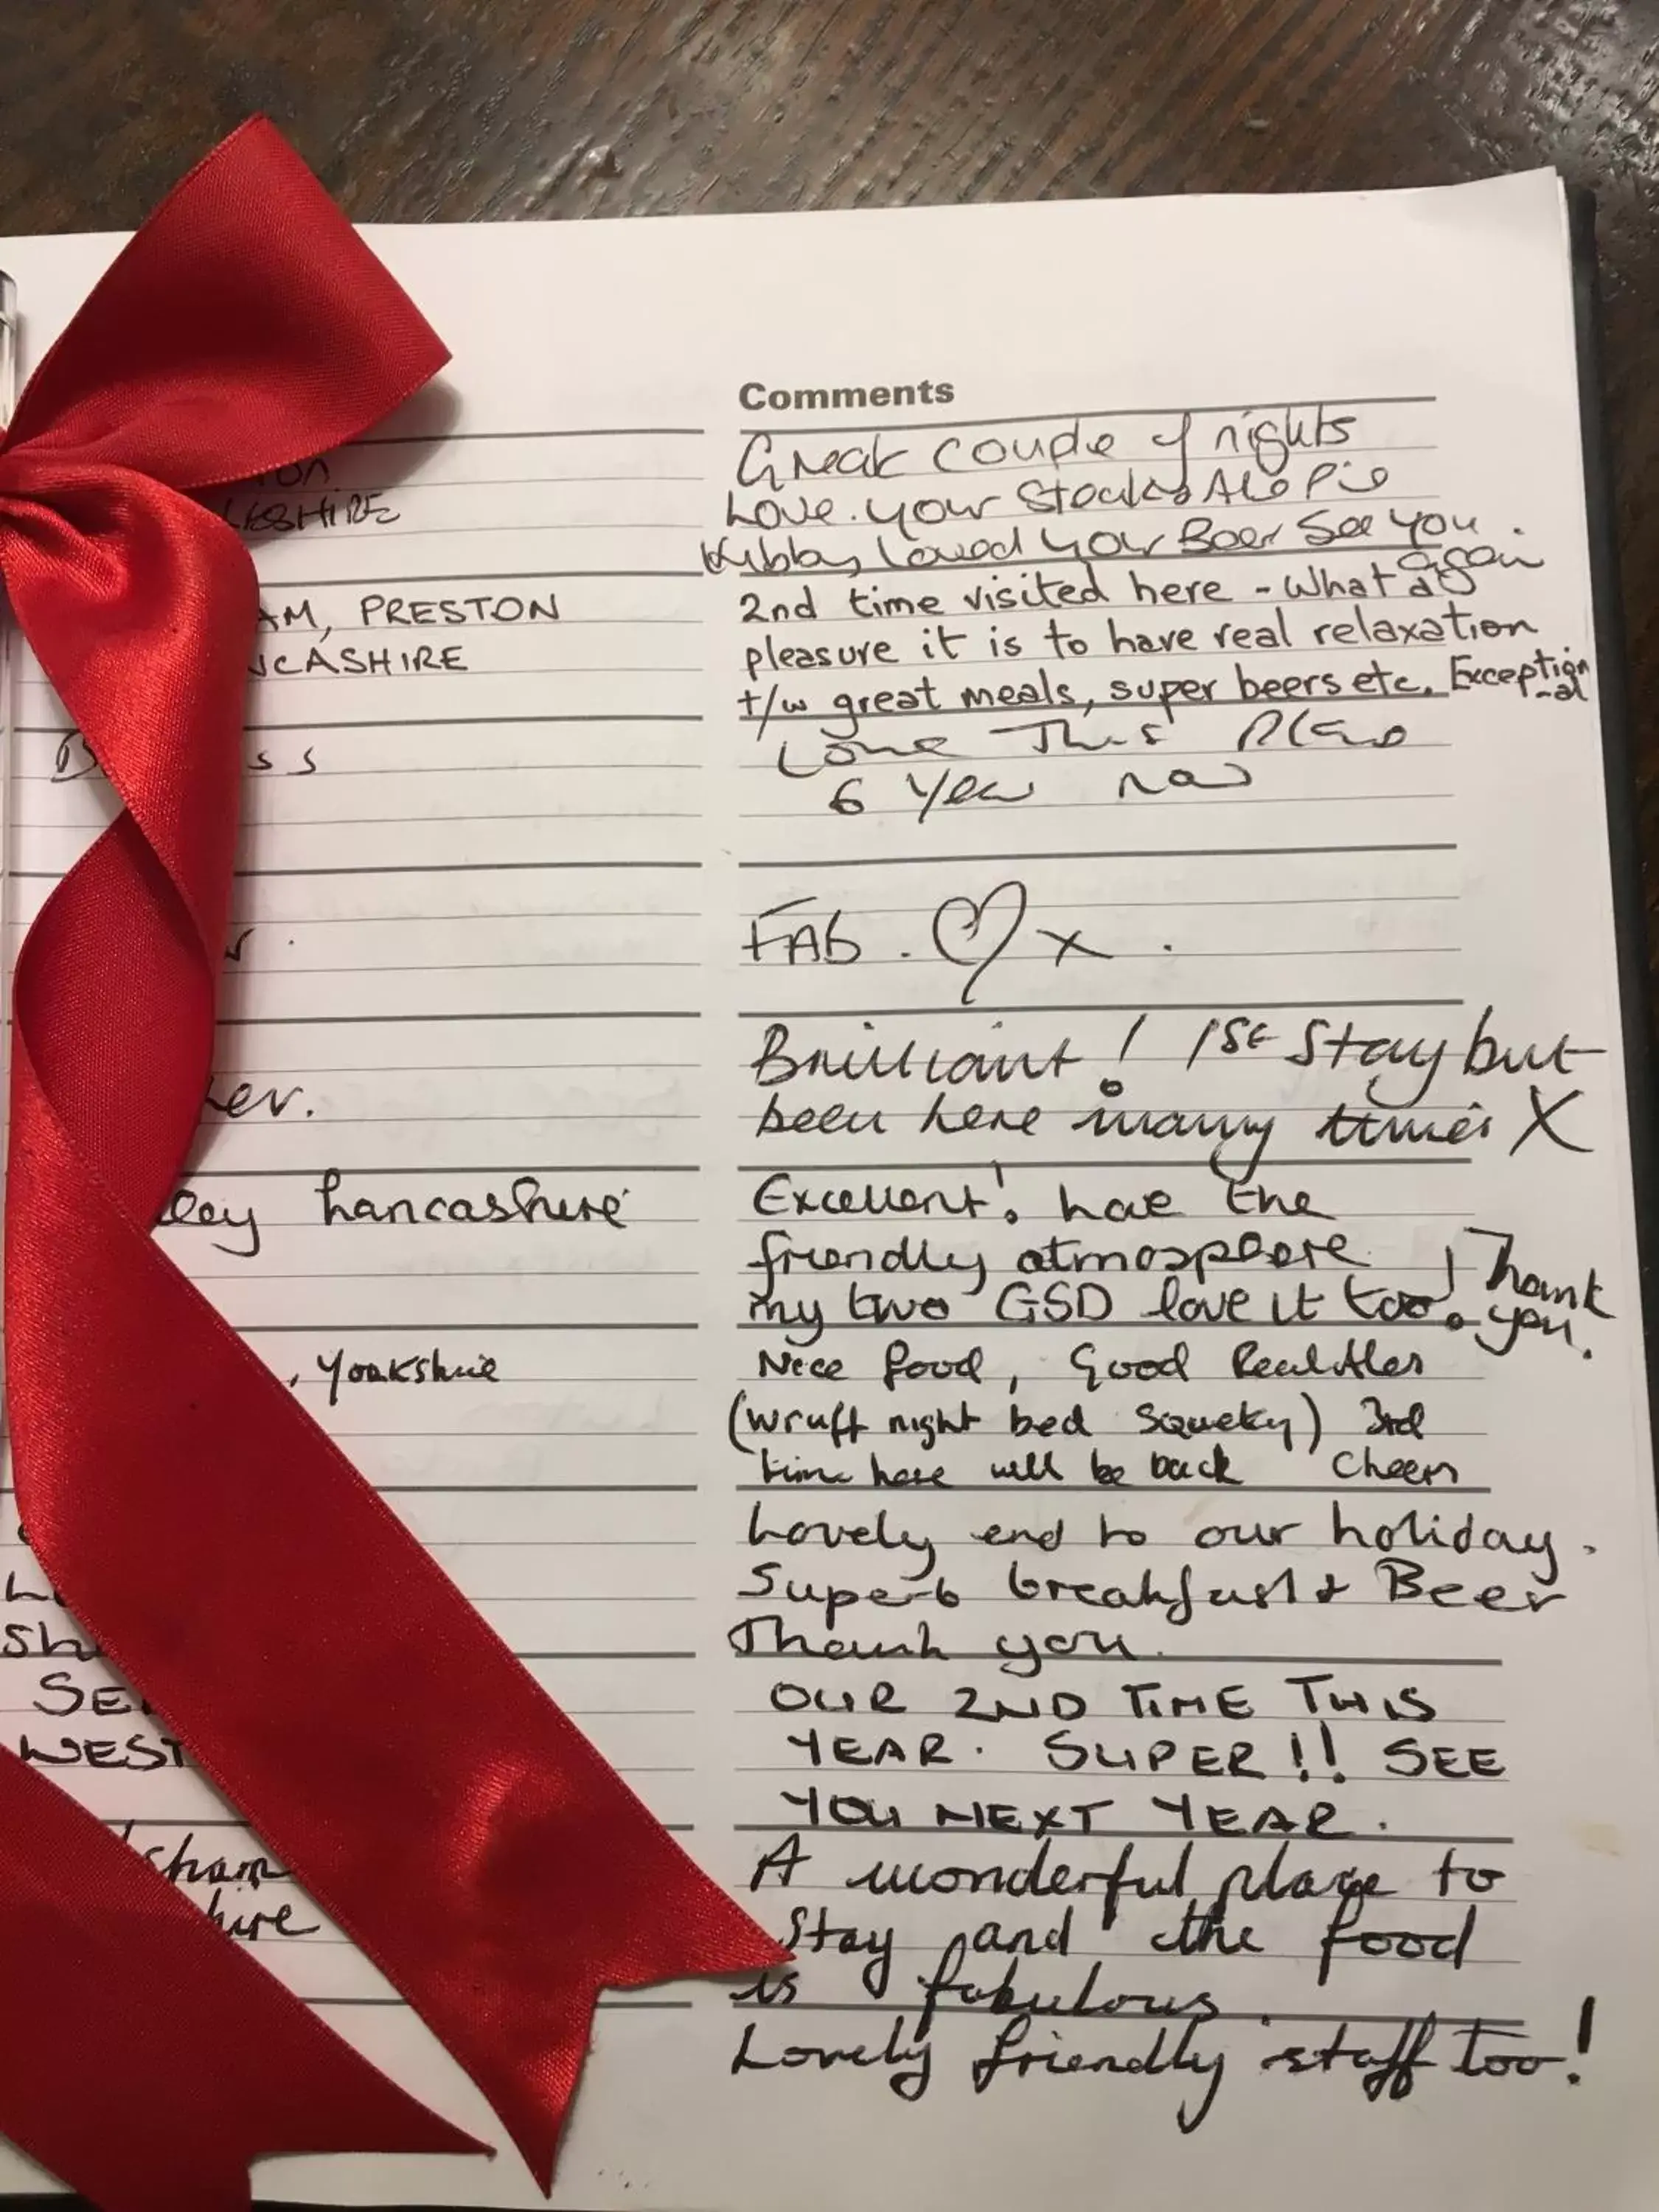 Comments
Great couple of nights
Love your Steak & Ale Pie
loved your Beer See you
again
AM, PRESTON
2nd time visited here - What a
pleasure it is to have real relaxation
NCASHIRE
t/w great meals, super beers etc. Exception
-al
Love This Place
6 Year now
FAB. ♡ x.
Brilliant! 1st Stay but
been here many times X
ley Lancashire
Excellent! Love the
friendly atmosphere
my two GSD love it too! Thank
you.
, Yorkshire
Nice food, Good Real Ales
(wruff night bed squeky) 3rd
time here will be back Cheers
Lovely end to our holiday.
Superb breakfast & Beer
Thank you.
SE
OUR 2ND TIME THIS
WEST
YEAR. SUPER!! SEE
YOU NEXT YEAR.
sham
A wonderful place to
hire
Stay and the food
is fabulous.
Lovely friendly staff too!